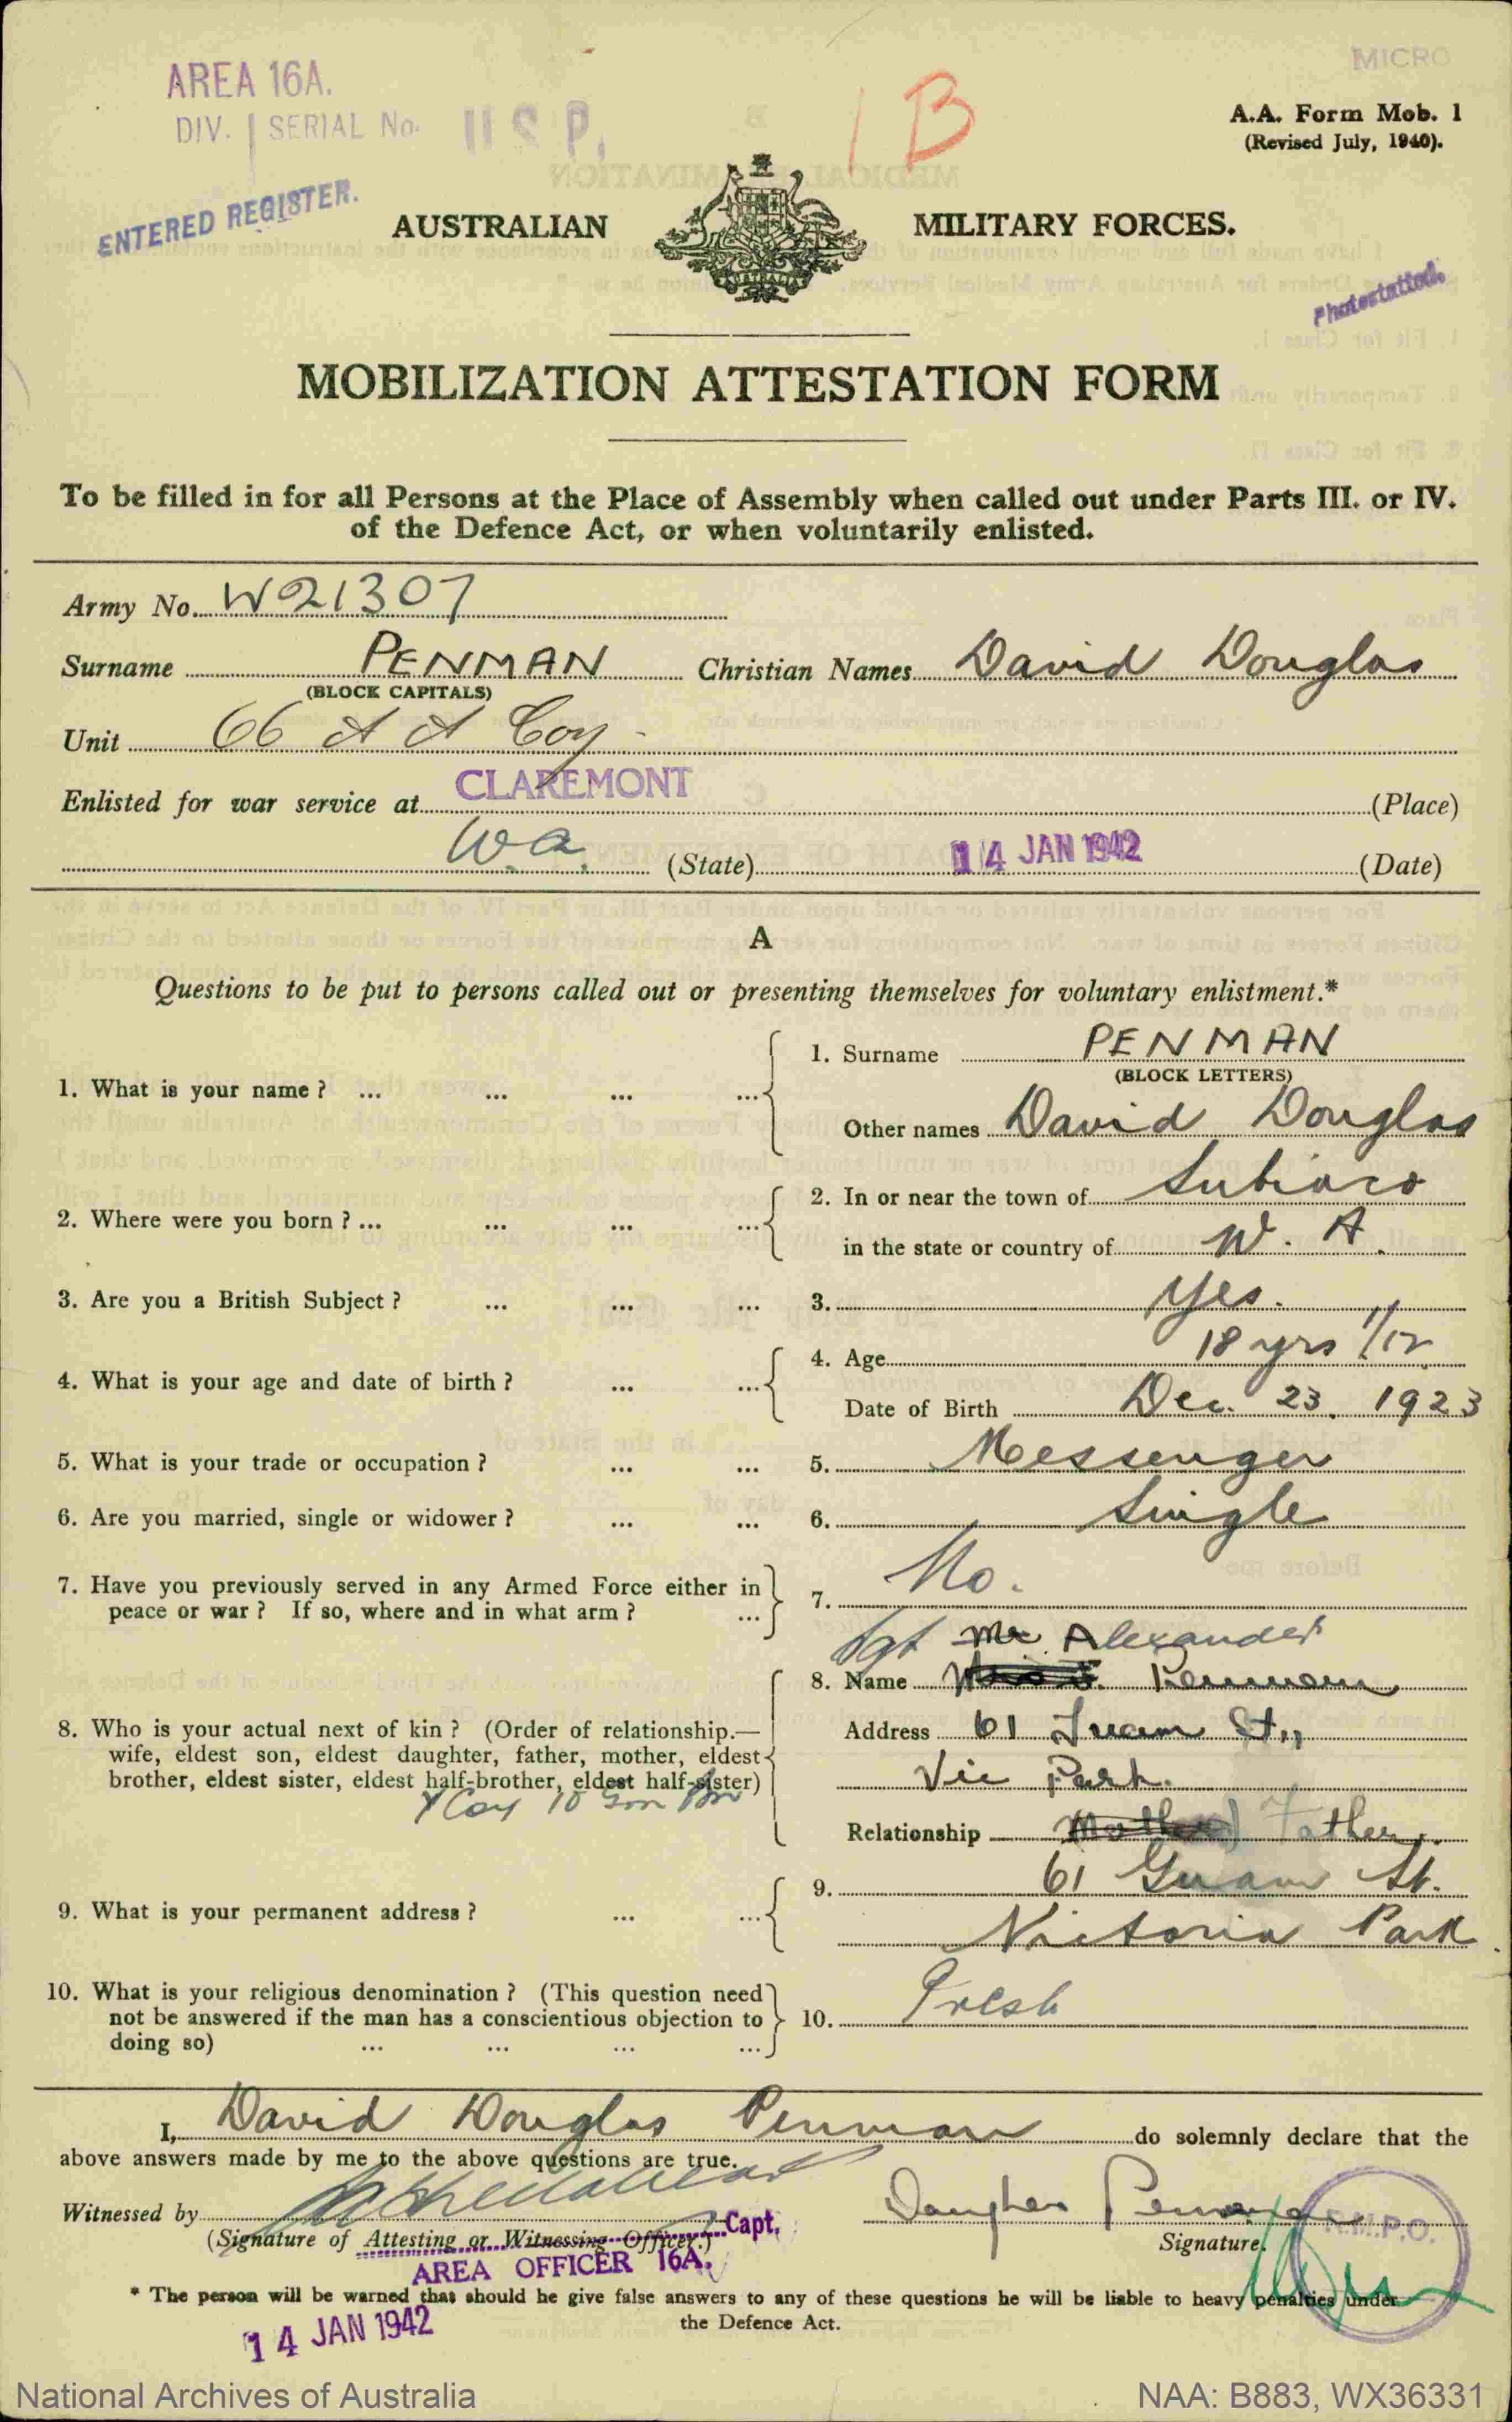 MICRO
AREA 16A.
DIV. SERIAL No. U S P.
1 B
A.A. Form Mob. 1
(Revised July, 1940).
ENTERED REGISTER.
AUSTRALIAN MILITARY FORCES.
Photostatted.
MOBILIZATION ATTESTATION FORM
To be filled in for all Persons at the Place of Assembly when called out under Parts III. or IV.
of the Defence Act, or when voluntarily enlisted.
Army No. W21307
Surname PENMAN Christian Names David Douglas
(BLOCK CAPITALS)
Unit 66 A A Coy
Enlisted for war service at CLAREMONT (Place)
W.a. (State) 14 JAN 1942 (Date)
A
Questions to be put to persons called out or presenting themselves for voluntary enlistment.*
1. What is your name ? ... ... ... ... 1. Surname PENMAN
(BLOCK LETTERS)
Other names David Douglas
2. Where were you born ? ... ... ... ... 2. In or near the town of Subiaco
in the state or country of W. A.
3. Are you a British Subject ? ... ... ... 3. Yes.
4. What is your age and date of birth ? ... ... 4. Age 18 yrs 1/12
Date of Birth Dec. 23. 1923
5. What is your trade or occupation ? ... ... 5. Messenger
6. Are you married, single or widower ? ... ... 6. Single
7. Have you previously served in any Armed Force either in
peace or war ? If so, where and in what arm ? ... 7. No.
Sgt Mr Alexander
8. Name Penman
8. Who is your actual next of kin ? (Order of relationship.—
wife, eldest son, eldest daughter, father, mother, eldest
brother, eldest sister, eldest half-brother, eldest half-sister)
Y Coy 10 Gon Bn
Address 61 St,
Vic Park.
Relationship Mother Father.
9. What is your permanent address ? ... ... 9. 61 Guam St.
Victoria Park
10. What is your religious denomination ? (This question need
not be answered if the man has a conscientious objection to
doing so) ... ... ... ... 10. Presb
I, David Douglas Penman do solemnly declare that the
above answers made by me to the above questions are true.
Witnessed by Capt.
(Signature of Attesting or Witnessing Officer.)
AREA OFFICER 16A.
Douglas Penman
Signature.
R.M.P.O.
* The person will be warned that should he give false answers to any of these questions he will be liable to heavy penalties under
the Defence Act.
14 JAN 1942
National Archives of Australia
NAA: B883, WX36331